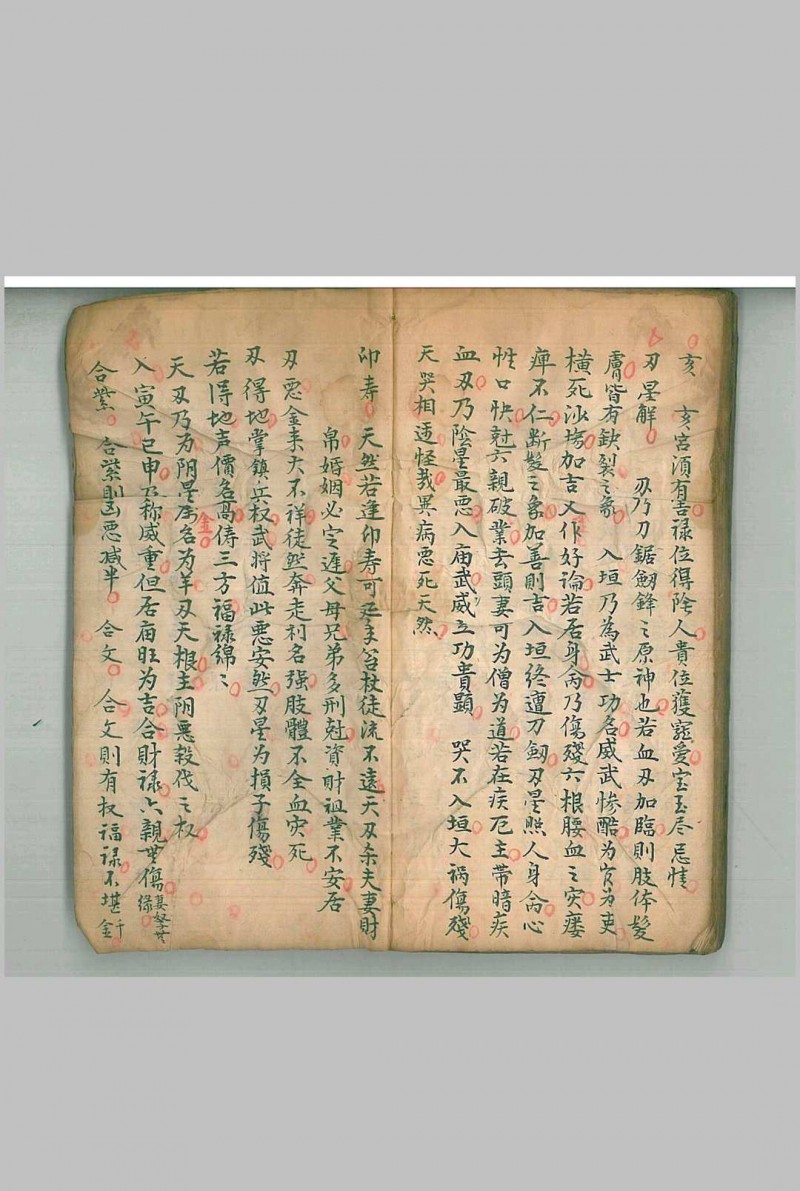 亥　亥宮須有喜禄位得陰人貴位獲寵愛宝玉尽忌情
刃星解　刃乃刀鋸劒鋒之原神也若血刃加臨則肢体髮
膚皆有缺裂之象　入垣乃為武士功名威武惨酷为官为吏
橫死泳塲加吉又作好論若居身命乃傷殘六根腰血之灾瘘
痺不仁断髮之象加善則吉入垣終遭刀劒刃星照人身命心
性口快尅六親破業去頭妻可为僧为道若在疾厄主帶暗疾
血刃乃陰星最悪入庙武威立功貴顯　哭不入垣大祸傷殘
天哭相遇怪哉異病悪死天然
印寿　天然若逢印寿可延主笞杖徒流不遠天刃杀夫妻財
帛婚姻必定遅父母兄弟多刑尅資財祖業不安居
刃悪金来大不祥徒然奔走利名强肢體不全血灾死
刃得地掌鎮兵权武将值此悪安然刃星为損子傷殘
若得地声價名高俦三方福禄綿〻
天刃乃为阴星属金名为羊刃天根主阴悪殺伐之权
入寅午巳申乃称威重但居庙旺为吉合財禄六親無傷妻孥無缘
合紫　合紫則凶悪减半　合文　合文則有权福禄不堪千金